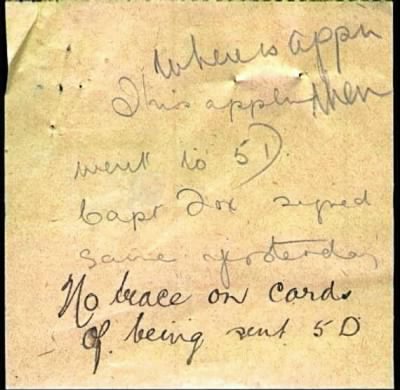 Where is appn then
This appln
went to 5D
Capt Fox signed
same yesterday
No trace on cards
of being sent 5D